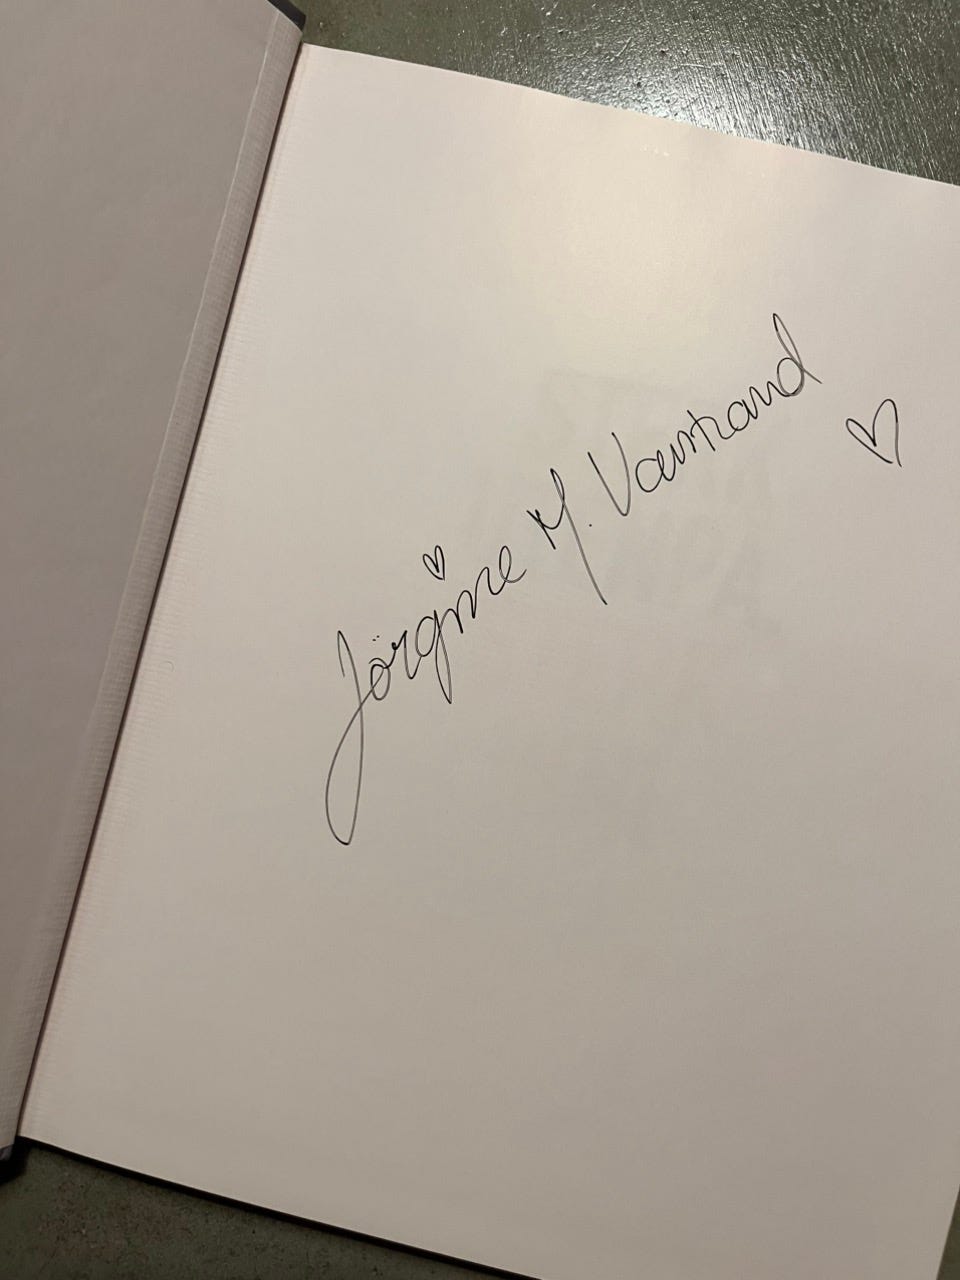 Jörgine M. Vasstrand